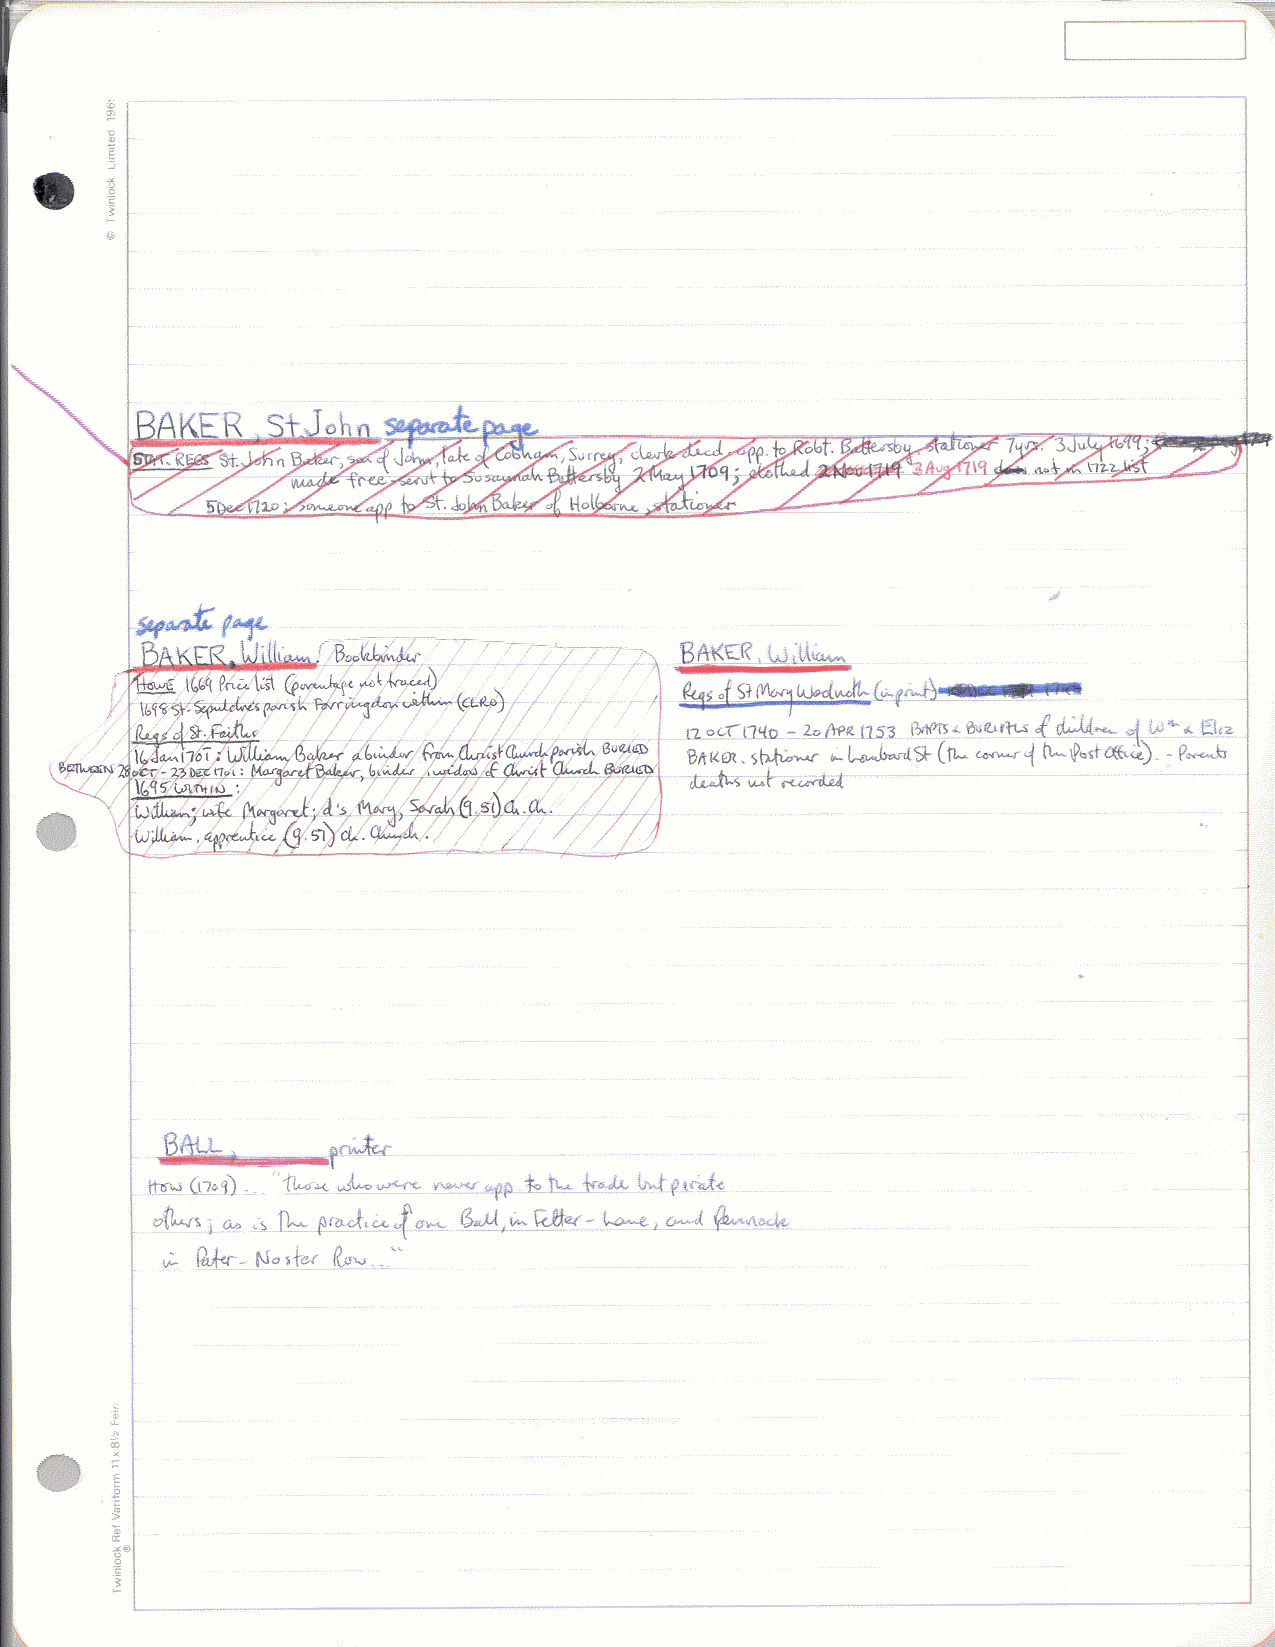 © Twinlock Limited 196
BAKER, St. John separate page
STAT. REGS St. John Baker, son of John, late of Cobham, Surrey, clerk decd, app. to Robt. Battersby, stationer 7yrs. 3 July 1699;
made free serut to Susannah Battersby 2 May 1709; clothed 2 Nov 1719 3 Aug 1719 not in 1722 list
5 Dec 1720: someone app to St. John Baker of Holborne, stationer
separate page
BAKER, William. Bookbinder
HOWE 1669 Price list (parentage not traced)
1698 St. Sepulchre's parish Farringdon within (CLRO)
Regs of St. Faiths
16 Jan 1701: William Baker a binder from Christ Church parish BURIED
BETWEEN 28 OCT - 23 DEC 1701: Margaret Baker, binder, widow of Christ Church BURIED
1695 WITHIN:
William; wife Margaret; d's Mary, Sarah (9.51) Ch. Ch.
William, apprentice (9.51) Ch. Church.
BAKER, William
Regs of St Mary Woolnoth (in print)
12 OCT 1740 - 20 APR 1753 BAPTS & BURIALS of children of Wm & Eliz
BAKER, stationer in Lombard St (the corner of the Post Office). - Parents
deaths not recorded
BALL, printer
How (1709)... "Those who were never app. to the trade but pirate
others; as is the practice of one Ball, in Fetter-Lane, and Pennock
in Pater-Noster Row..."
Twinlock Ref Variform 11 x 8½ Fein